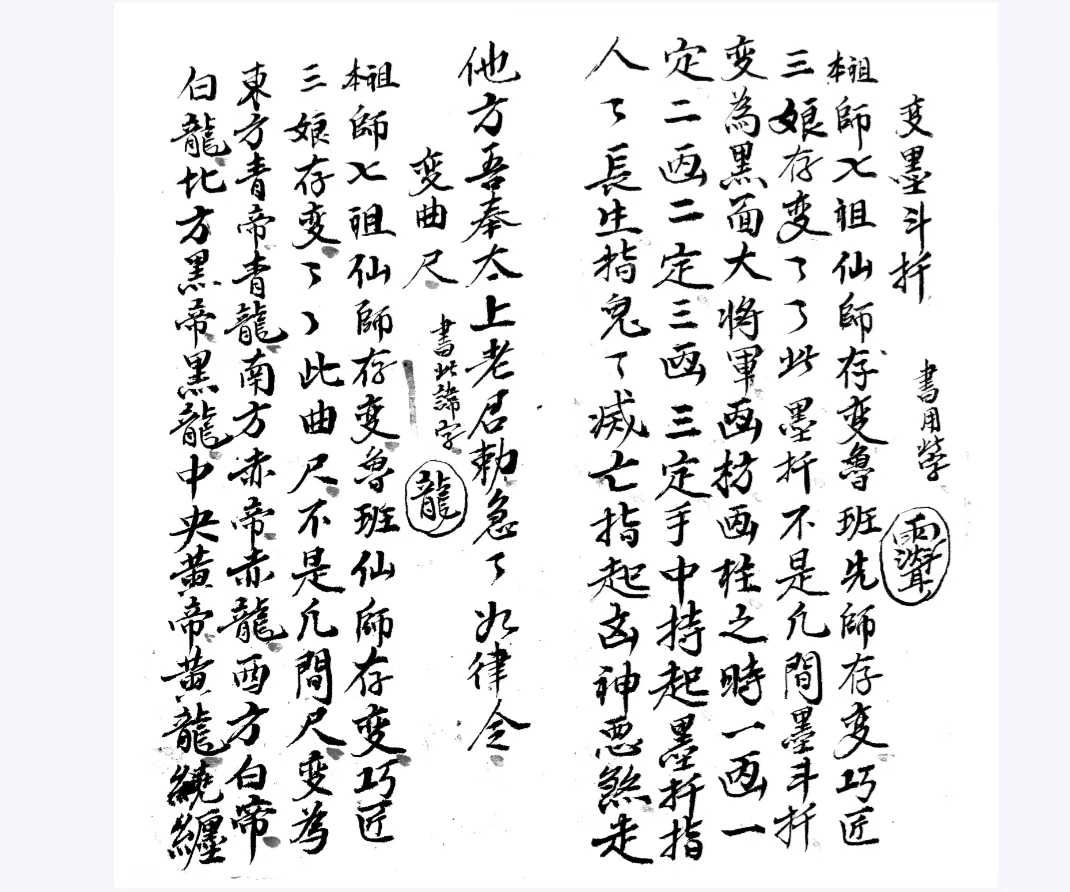 变墨斗扦 書用諱字
本祖師七祖仙師存变魯班先師存变巧匠
三娘存变了了此墨扦不是凢間墨斗扦
变為黑面大将軍画枋画柱之時一画一
定二画二定三画三定手中持起墨扦指
人了長生指鬼了滅亡指起凶神悪煞走
他方吾奉太上老君勅急了如律令
变曲尺 書此諱字 龍
本祖師七祖仙師存变魯班仙師存变巧匠
三娘存变了了此曲尺不是凢間尺变為
東方青帝青龍南方赤帝赤龍西方白帝
白龍北方黑帝黑龍中央黃帝黃龍繞纏